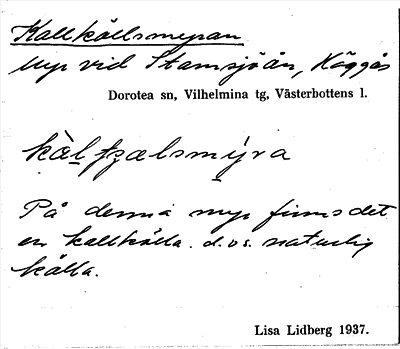 Kallkällsmyran
Myr vid Stamsjöån, Häggås
Dorotea sn, Vilhelmina tg, Västerbottens l.
På denna myr finns det
en kallkälla. d.v.s. naturlig
källa.
Lisa Lidberg 1937.